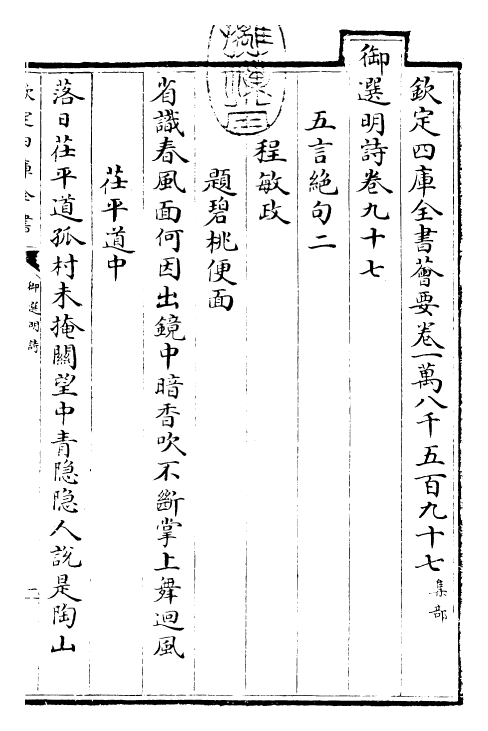 欽定四庫全書薈要卷一萬八千五百九十七集部
御選明詩卷九十七
五言絶句二
程敏政
題碧桃便面
省識春風面何因出鏡中暗香吹不斷掌上舞迴風
茌平道中
落日茌平道孤村未掩關望中青隱隱人說是陶山
欽定四庫全書
御選明詩